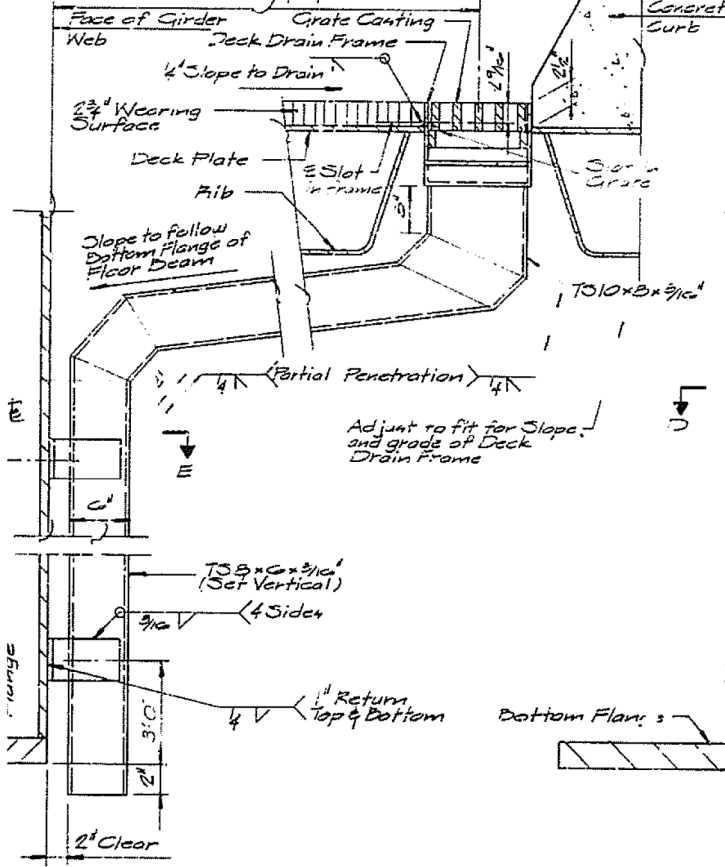 Face of Girder
Web
Grate Casting
Concret
Curb
Deck Drain Frame
¼" Slope to Drain
1 9/16"
2½"
2¾" Wearing
Surface
Deck Plate
℄ Slot
in frame
Slot in
Grate
Rib
5"
Slope to follow
Bottom Flange of
Floor Beam
TS10×8×5/16"
4
Partial Penetration
4
Adjust to fit for Slope
and grade of Deck
Drain Frame
D
E
6"
TS8×6×3/16"
(Set Vertical)
3/16
4 Sides
Flange
3'0"
1" Return
Top & Bottom
4
Bottom Flan
2"
2" Clear